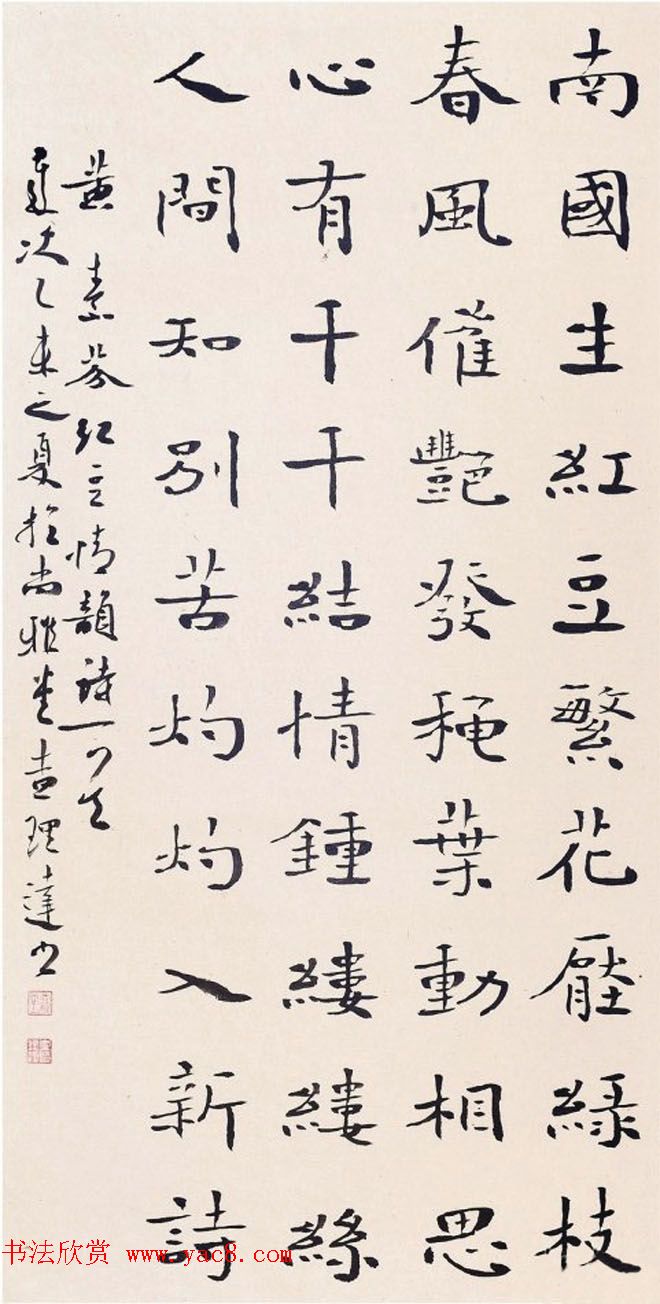 南國生紅豆繁花壓綠枝
春風催艷發穐葉動相思
心有千千結情鍾縷縷絲
人間知別苦灼灼入新詩
黃素芬紅豆情韻詩一首
歲次乙未之夏於尚雅堂查理達書
书法欣赏 www.yac8.com